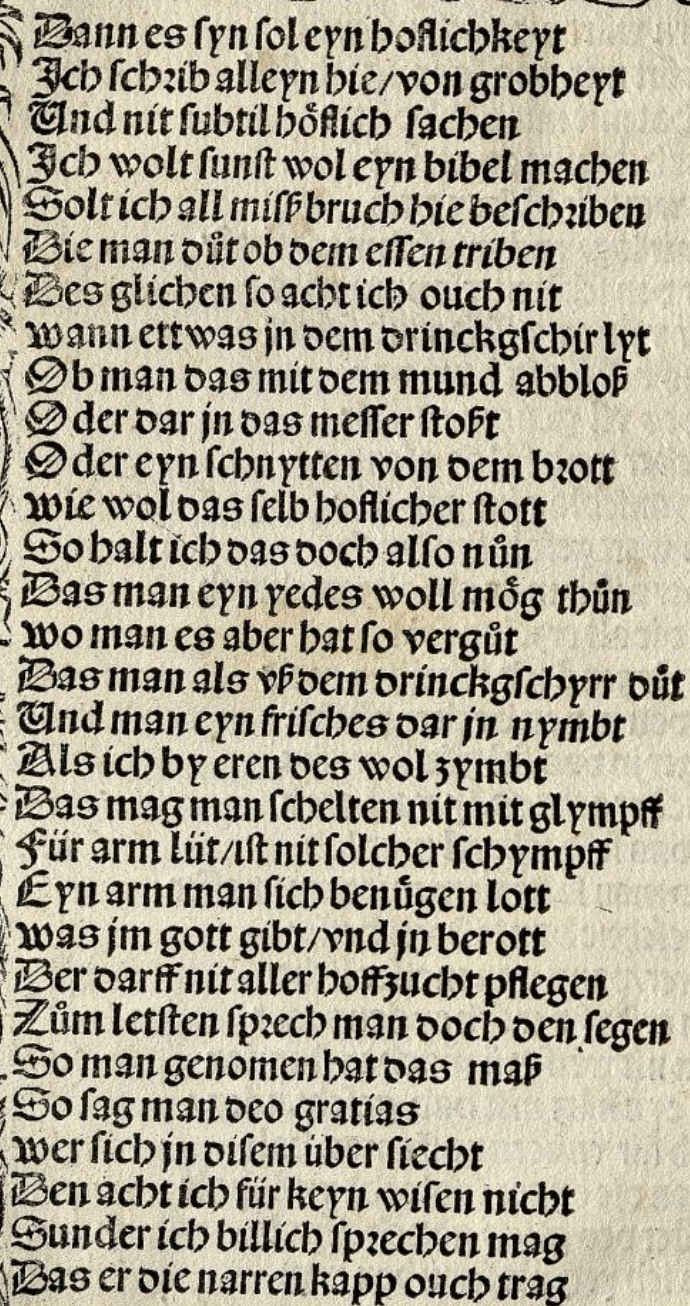 Dann es syn sol eyn hoflichkeyt
Ich schrib alleyn hie/von grobheyt
Und nit subtil hoͤflich sachen
Ich wolt sunst wol eyn bibel machen
Solt ich all mißbruch hie beschriben
Die man duͤt ob dem essen triben
Des glichen so acht ich ouch nit
wann ettwas jn dem drinckgschir lyt
Ob man das mit dem mund abbloß
Oder dar jn das messer stoßt
Oder eyn schnytten von dem brott
wie wol das selb hoflicher stott
So halt ich das doch also nuͦn
Das man eyn yedes woll moͤg thuͦn
wo man es aber hat so verguͦt
Das man als vß dem drinckgschyrr duͦt
Und man eyn frisches dar jn nymbt
Als ich by eren des wol zymbt
Das mag man schelten nit mit glympff
Für arm lüt/ist nit solcher schympff
Eyn arm man sich benuͤgen lott
was jm gott gibt/vnd jn berott
Der darff nit aller hoffzucht pflegen
Zuͦm letsten sprech man doch den segen
So man genomen hat das maß
So sag man deo gratias
wer sich jn disem über siecht
Den acht ich für keyn wisen nicht
Sunder ich billich sprechen mag
Das er die narren kapp ouch trag